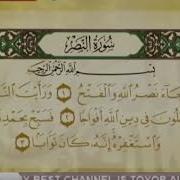 سُورَةُ النَّصْرِ
بِسْمِ اللَّهِ الرَّحْمَٰنِ الرَّحِيمِ
جَاءَ نَصْرُ اللَّهِ وَالْفَتْحُ ١ وَرَأَيْتَ
لُونَ فِي دِينِ اللَّهِ أَفْوَاجًا ٢ فَسَبِّحْ بِحَمْدِ
وَاسْتَغْفِرْهُ إِنَّهُ كَانَ تَوَّابًا ٣
Y BEST CHANNEL IS TOYOR AL